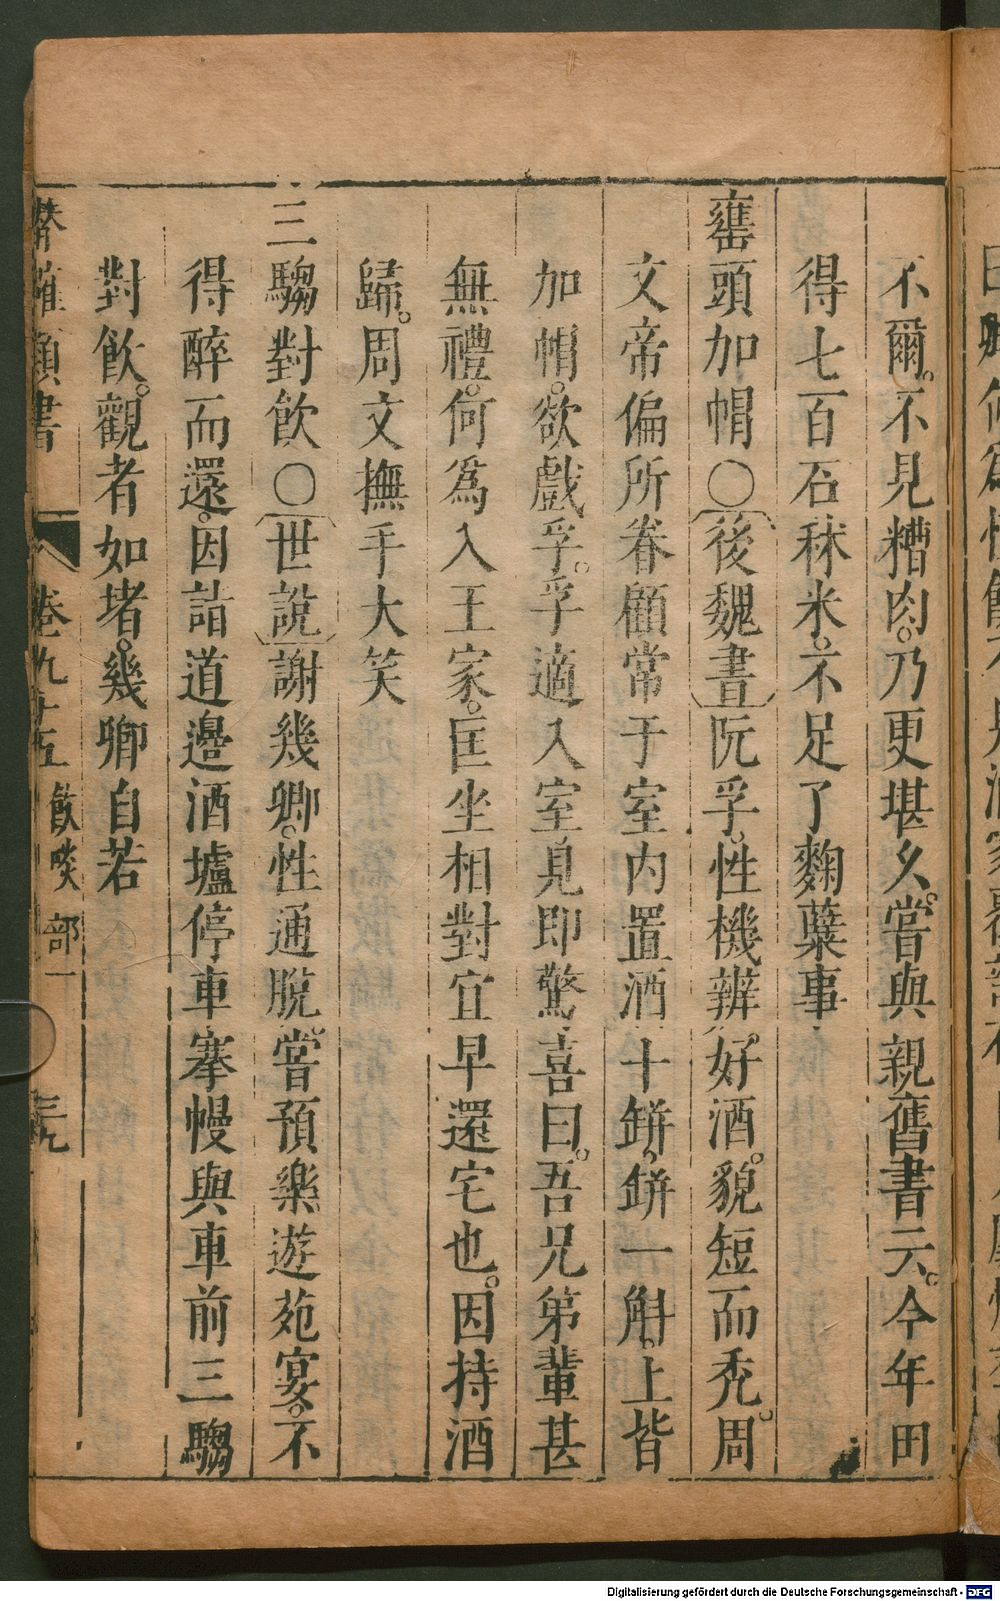 不爾。不見糟肉。乃更堪久。嘗與親舊書云。今年田
得七百石秫米。不足了麴糵事
罋頭加帽〇後魏書阮孚。性機辨。好酒。貌短而禿。周
文帝偏所眷顧常于室內置酒十缾。缾一斛。上皆
加帽。欲戲孚。孚適入室見即驚喜曰。吾兄第輩甚
無禮。何爲入王家。匡坐相對宜早還宅也。因持酒
歸。周文撫手大笑
三騶對飲〇世說謝幾卿。性通脫。嘗預樂遊苑宴。不
得醉而還。因詣道邊酒壚停車搴幔與車前三騶
對飲。觀者如堵。幾卿自若
類書 卷九十五 飲啖 部一
Digitalisierung gefördert durch die Deutsche Forschungsgemeinschaft - DFG